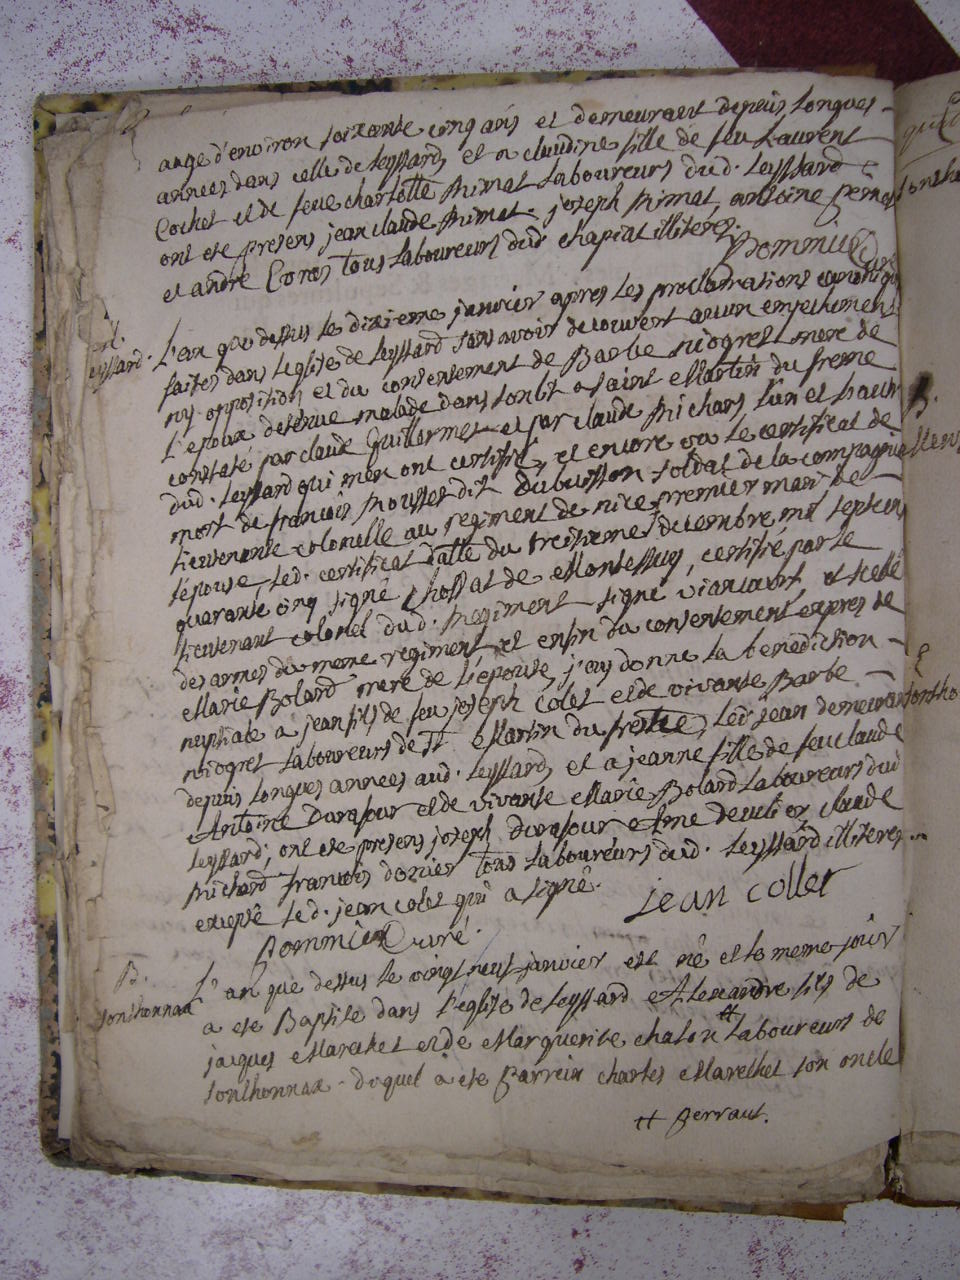 aagé d'environ soixante cinq ans et demeurant depuis longues
années dans celle de Leyssard, et a claudine fille de feu Laurent
Cochet et de feue charlotte Nimat Laboureurs dud. Leyssard
ont ete presens jean claude Nimat. joseph Nimat, antoine
et andré tous Laboureurs dud chapiat illitérés.
Bommier Curé
M.
Leyssard.
L'an que dessus le dixieme janvier apres les proclamations
faites dans l'eglise de Leyssard sans avoir decouvert aucun empechement
ny opposition et du consentement de Barbe niogret mere de
L'epoux detenue malade dans son lit a saint Martin du frene
constaté par claude Guillermet et par claude Michard, l'un et l'autre
dud. Leyssard qui m'en ont certifié, et encore vu le certificat de
mort de francois Mousset dit Dubuisson soldat de la compagnie
Lieutenante colonelle au regiment de nice premier mari de
l'epouse, led. certificat datté du treisieme decembre mil sept cent
quarante cinq signé Chossat de Montessuy, certifié par le
lieutenant colonel dud. Regiment signé viancourt, et scellé
des armes du meme regiment et enfin du consentement exprés de
Marie Bolard mere de l'epouse, j'ay donné la benediction
nuptiale a jean fils de feu joseph Colet et de vivante Barbe
niogret Laboureurs de St Martin du fresne, led. jean demeurant
depuis longues années aud. Leyssard, et a jeanne fille de feu claude
Antoine Durafour et de vivante Marie Bolard Laboureurs dud
Leyssard; ont ete presens joseph Durafour claude
Michard francois tous Laboureurs dud. Leyssard illiteres
excepté led. jean colet qui a signé.
jean collet
Bommier Curé.
B.
Sonthonnax
L'an que dessus le vingt neuf janvier est né et le meme jour
a ete Baptisé dans l'eglise de Leyssard Alexandre fils de
jacques Marechet et de Marguerite chalon # Laboureurs de
Sonthonnax. duquel a ete parrein charles Marechet son oncle
# perraut.